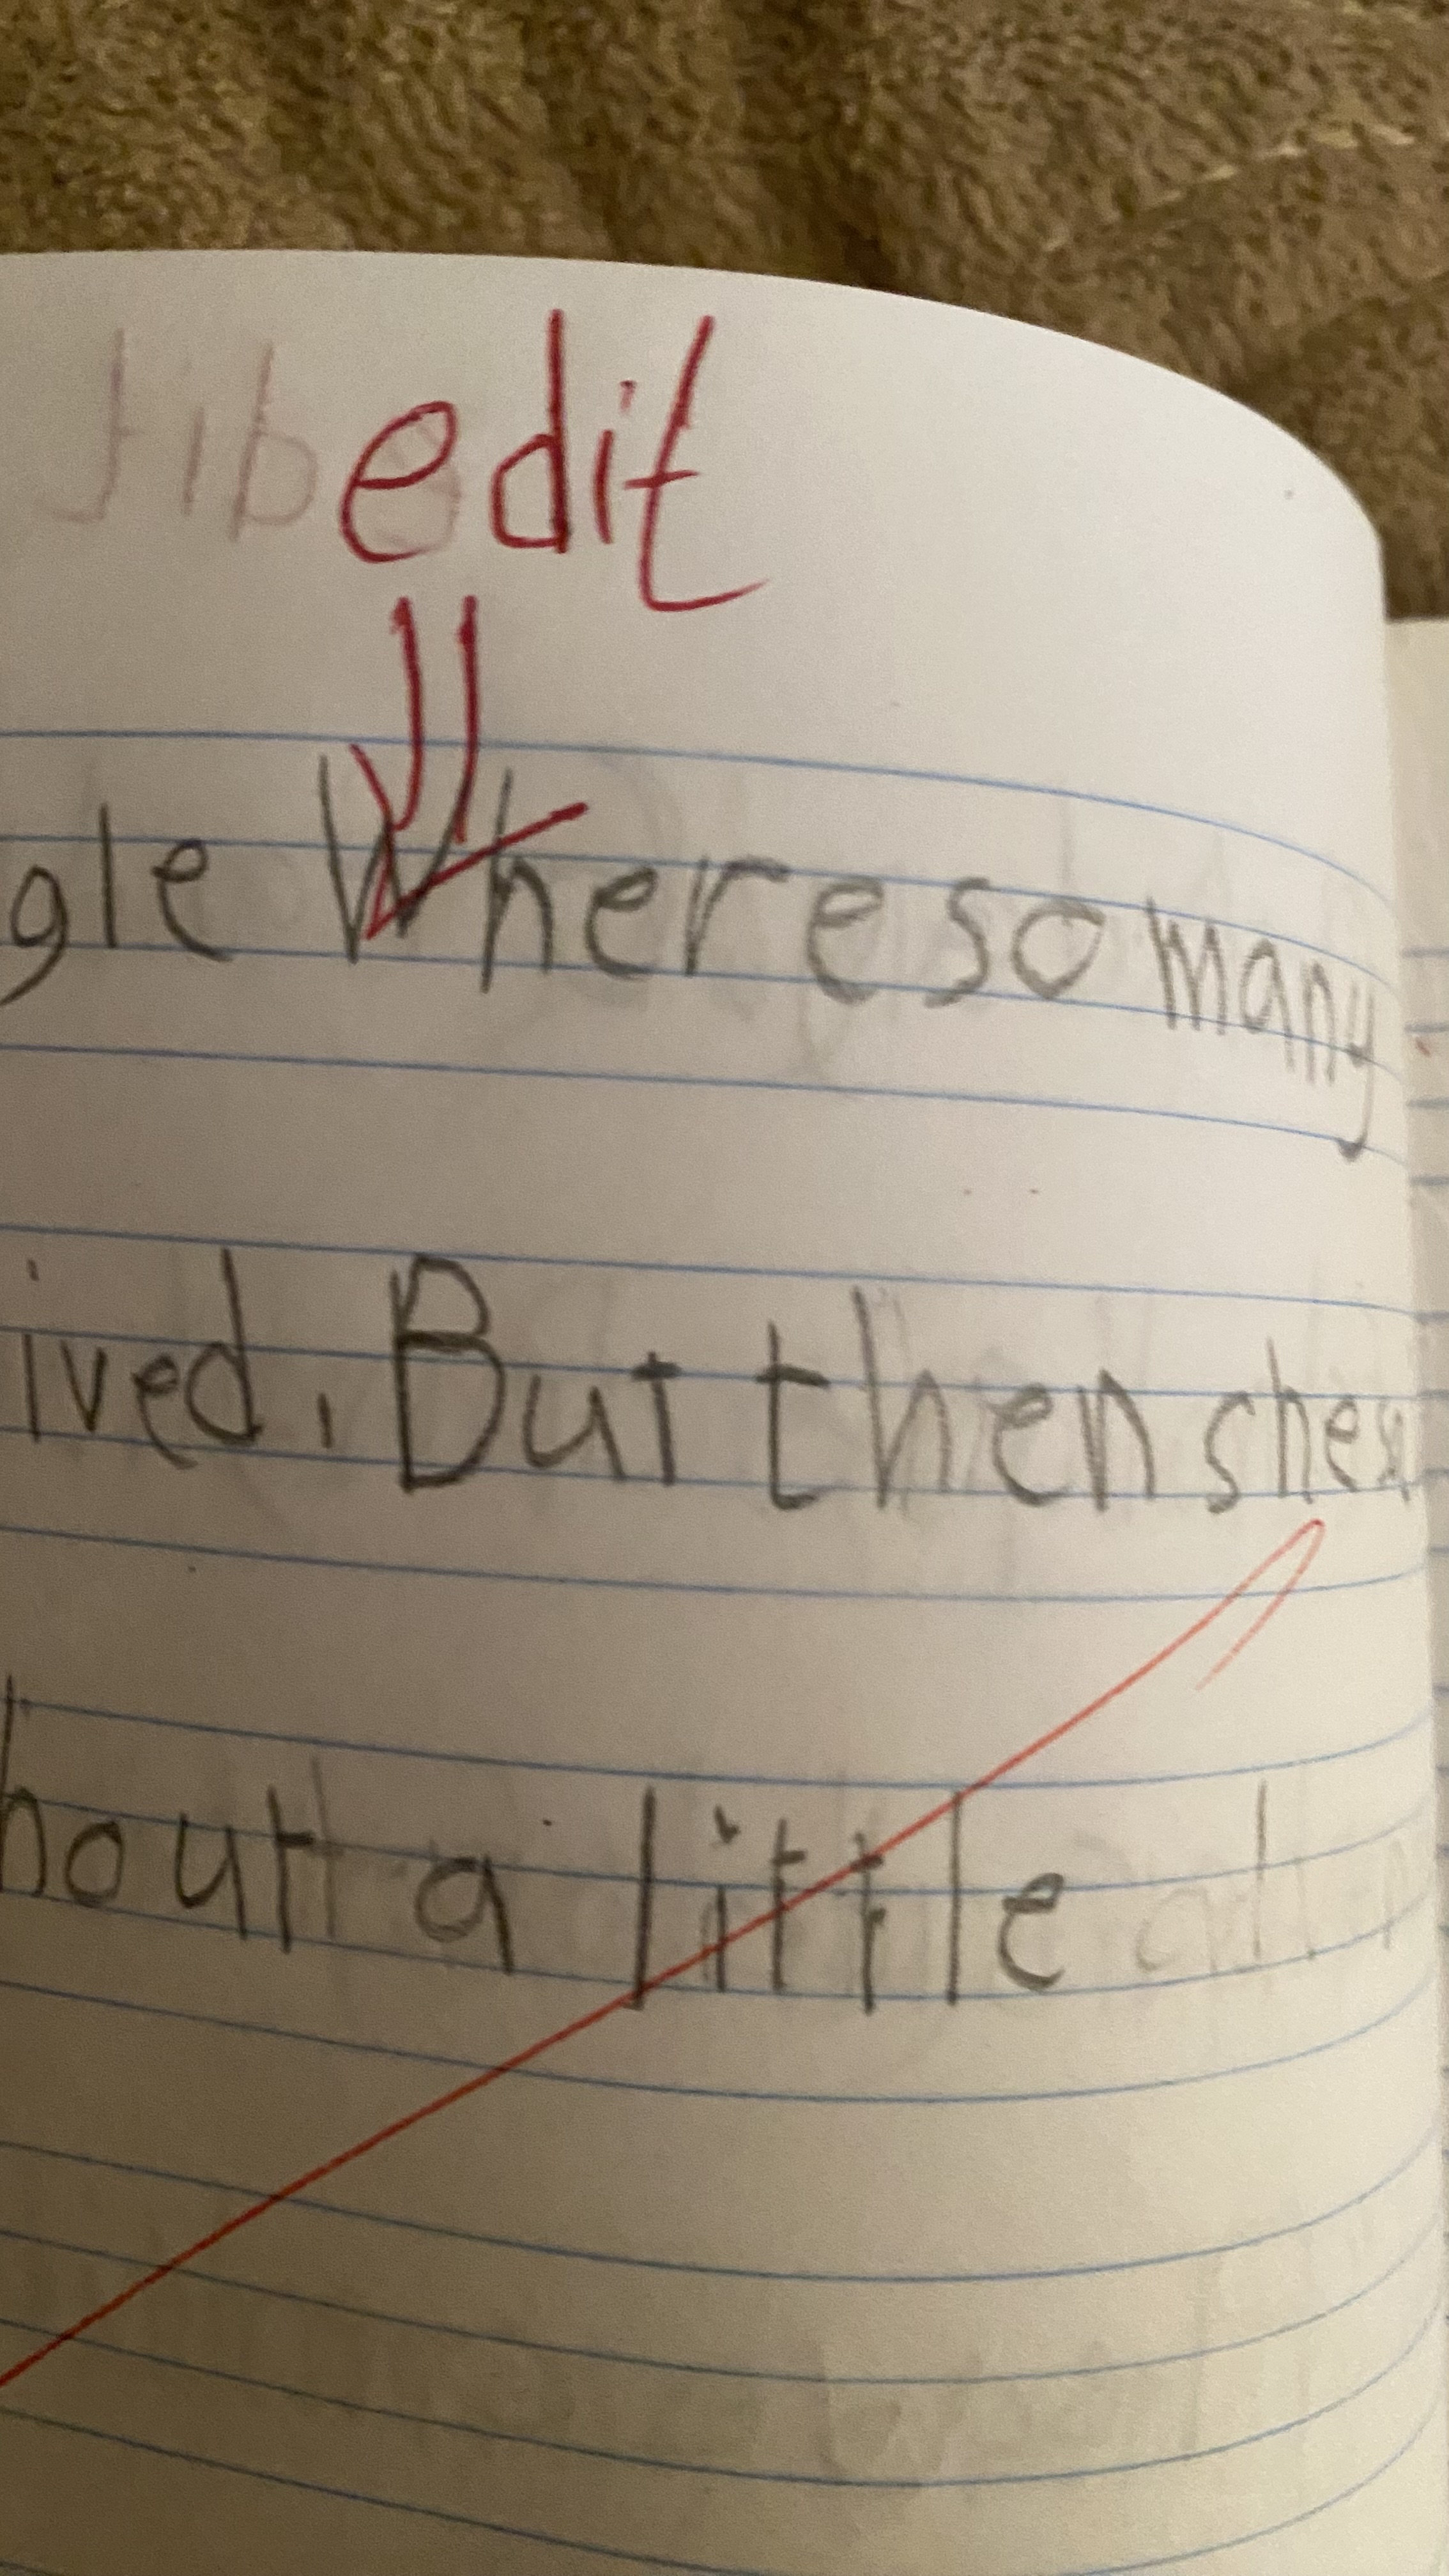 edit
gle Where so many
ived. But then she
bout a little